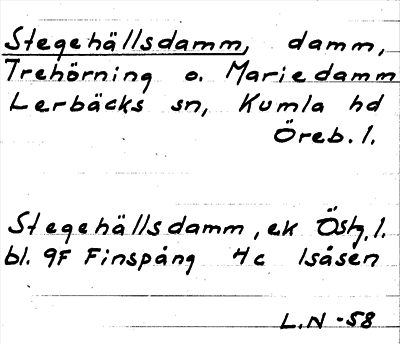 Stegehällsdamm, damm,
Trehörning o. Mariedamm
Lerbäcks sn, Kumla hd
Öreb. l.
Stegehällsdamm, ek Östg. l.
bl. 9F Finspång 4c Isåsen
L.N -58